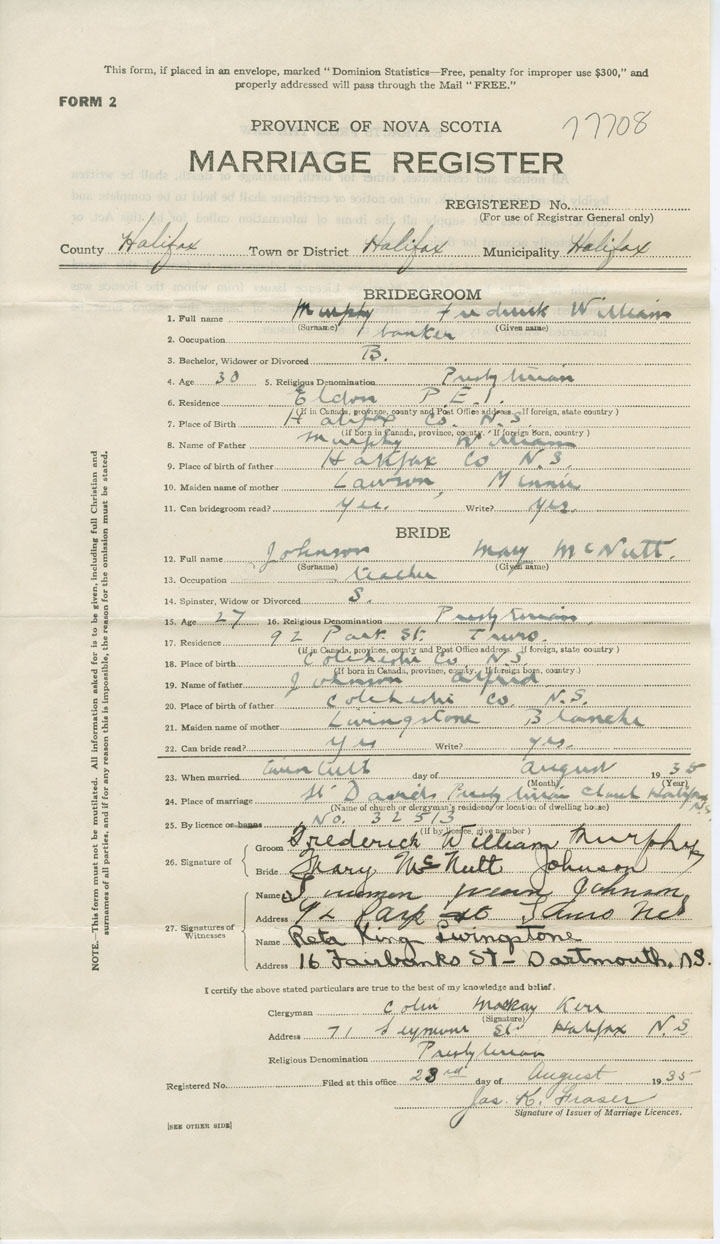 This form, if placed in an envelope, marked "Dominion Statistics—Free, penalty for improper use $300," and
properly addressed will pass through the Mail "FREE."
FORM 2
77708
PROVINCE OF NOVA SCOTIA
MARRIAGE REGISTER
REGISTERED No.
(For use of Registrar General only)
County Halifax Town or District Halifax Municipality Halifax
BRIDEGROOM
1. Full name Murphy Frederick William
(Surname) (Given name)
2. Occupation banker
3. Bachelor, Widower or Divorced B.
4. Age 30 5. Religious Denomination Presbyterian
6. Residence Eldon P.E.I.
(If in Canada, province, county and Post Office address. If foreign, state country)
7. Place of Birth Halifax Co. N.S.
(If born in Canada, province, county. If foreign Born, country)
8. Name of Father Murphy William
9. Place of birth of father Halifax Co N.S.
10. Maiden name of mother Lawson, Minnie
11. Can bridegroom read? Yes. Write? Yes.
BRIDE
12. Full name Johnson Mary McNutt.
(Surname) (Given name)
13. Occupation teacher
14. Spinster, Widow or Divorced S.
15. Age 27 16. Religious Denomination Presbyterian
17. Residence 92 Park St. Truro.
(If in Canada, province, county and Post Office address. If foreign, state country)
18. Place of birth Colchester Co. N.S.
(If born in Canada, province, county, if foreign born, country)
19. Name of father Johnson Alfred
20. Place of birth of father Colchester Co. N.S.
21. Maiden name of mother Livingstone Blanche
22. Can bride read? Yes Write? yes.
23. When married day of August 1935
(Month) (Year)
24. Place of marriage St David's Presbyterian Church Halifax N.S.
(Name of church or clergyman's residence or location of dwelling house)
25. By licence or banns No. 32513
(If by licence, give number)
26. Signature of
Groom Frederick William Murphy
Bride Mary McNutt Johnson
27. Signatures of Witnesses
Name Johnson
Address 92 Park St Truro NS
Name Reta King Livingstone
Address 16 Fairbanks St - Dartmouth, N.S.
I certify the above stated particulars are true to the best of my knowledge and belief.
Clergyman Colin Mackay Kerr
(Signature)
Address 71 Seymour St Halifax N S
Religious Denomination Presbyterian
Registered No. Filed at this office 23rd day of August 1935
Jas. K. Fraser
Signature of Issuer of Marriage Licences.
[SEE OTHER SIDE]
NOTE.—This form must not be mutilated. All information asked for is to be given, including full Christian and
surnames of all parties, and if for any reason this is impossible, the reason for the omission must be stated.